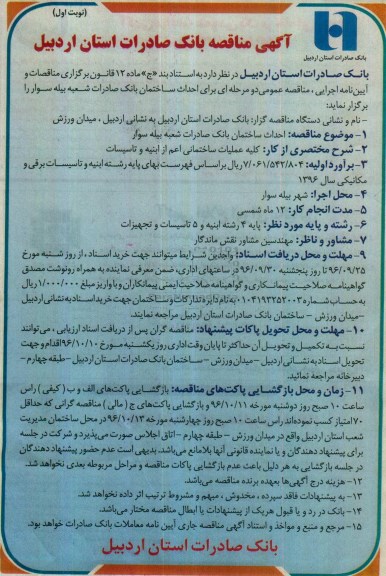 (نوبت اول)
بانک صادرات استان اردبیل
آگهی مناقصه بانک صادرات استان اردبیل
بانک صادرات استان اردبیل در نظر دارد به استناد بند «ج» ماده ۱۲ قانون برگزاری مناقصات و
آیین‌نامه اجرایی ، مناقصه عمومی دو مرحله ای برای احداث ساختمان بانک صادرات شعبه بیله سوار را
برگزار نماید:
- نام و نشانی دستگاه مناقصه گزار: بانک صادرات استان اردبیل به نشانی اردبیل ، میدان ورزش
۱- موضوع مناقصه: احداث ساختمان بانک صادرات شعبه بیله سوار
۲- شرح مختصری از کار: کلیه عملیات ساختمانی اعم از ابنیه و تاسیسات
۳- برآورد اولیه: ۷/۰۶۱/۵۴۲/۸۰۴ ریال بر اساس فهرست بهای پایه رشته ابنیه و تاسیسات برقی و
مکانیکی سال ۱۳۹۶
۴- محل اجرا: شهر بیله سوار
۵- مدت انجام کار: ۱۲ ماه شمسی
۶- رشته و پایه مورد نظر: پایه ۴ رشته ابنیه و ۵ تاسیسات و تجهیزات
۷- مشاور و ناظر: مهندسین مشاور نقش ماندگار
۹- مهلت و محل دریافت اسناد: واجدین شرایط میتوانند جهت خرید اسناد ، از روز شنبه مورخ
۹۶/۰۹/۲۵ تا روز پنجشنبه ۹۶/۰۹/۳۰ در ساعتهای اداری، ضمن معرفی نماینده به همراه رونوشت مصدق
گواهینامه صلاحیت پیمانکاری و گواهینامه صلاحیت ایمنی پیمانکاران و با واریز مبلغ ۱/۰۰۰/۰۰۰ ریال
به حساب شماره ۰۱۰۴۱۹۳۲۵۲۰۰۳ به نام دایره تدارکات و ساختمان جهت خرید اسناد به نشانی اردبیل
- میدان ورزش - ساختمان بانک صادرات استان اردبیل مراجعه نمایند.
۱۰- مهلت و محل تحویل پاکات پیشنهاد: مناقصه گران پس از دریافت اسناد ارزیابی ، می‌توانند
نسبت به تکمیل و تحویل آن حداکثر تا پایان وقت اداری روز یکشنبه مورخ ۹۶/۱۰/۱۰ اقدام و جهت
تحویل اسناد به نشانی اردبیل - میدان ورزش - ساختمان بانک صادرات استان اردبیل - طبقه چهارم -
دبیرخانه مراجعه نمائید.
۱۱- زمان و محل بازگشایی پاکت‌های مناقصه: بازگشایی پاکت‌های الف و ب ( کیفی ) راس
ساعت ۱۰ صبح روز دوشنبه مورخه ۹۶/۱۰/۱۱ و بازگشایی پاکت‌های ج ( مالی ) مناقصه گرانی که حداقل
۷۰ امتیاز کسب نموده‌اند راس ساعت ۱۰ صبح روز چهارشنبه مورخه ۹۶/۱۰/۱۳ در محل ساختمان مدیریت
شعب استان اردبیل واقع در میدان ورزش - طبقه چهارم - اتاق اجلاس صورت می‌پذیرد و شرکت در جلسه
برای پیشنهاد دهندگان و یا نماینده قانونی آنها بلامانع می‌باشد. بدیهی است عدم حضور پیشنهاد دهندگان
در جلسه بازگشایی به هر دلیل باعث عدم بازگشایی پاکات مناقصه و مراحل مربوطه بعدی نخواهد شد.
۱۲- هزینه درج آگهی‌ها بعهده برنده مناقصه می‌باشد.
۱۳- به پیشنهادات فاقد سپرده ، مخدوش ، مبهم و مشروط ترتیب اثر داده نخواهد شد.
۱۴- بانک در رد و یا قبول هر یک از پیشنهادات یا ابطال مناقصه مختار می‌باشد.
۱۵- مرجع و منبع و مواخذ و استناد آگهی مناقصه جاری آیین نامه معاملات بانک صادرات خواهد بود.
بانک صادرات استان اردبیل